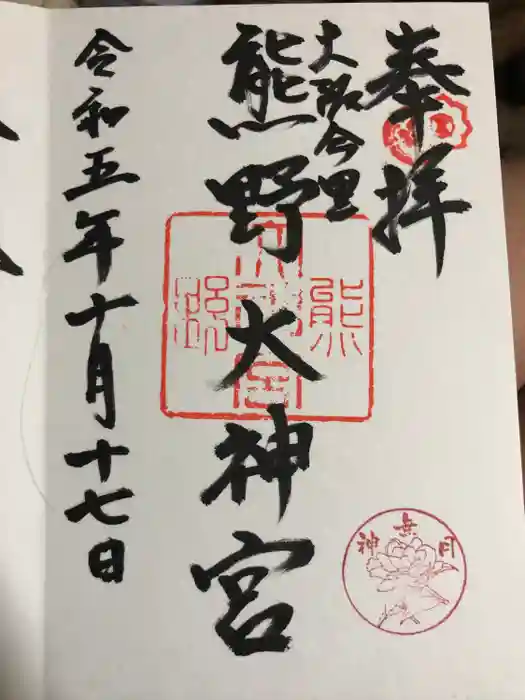 奉拝
大阪今里
熊野大神宮
令和五年十月十七日
熊野大神宮
神無月